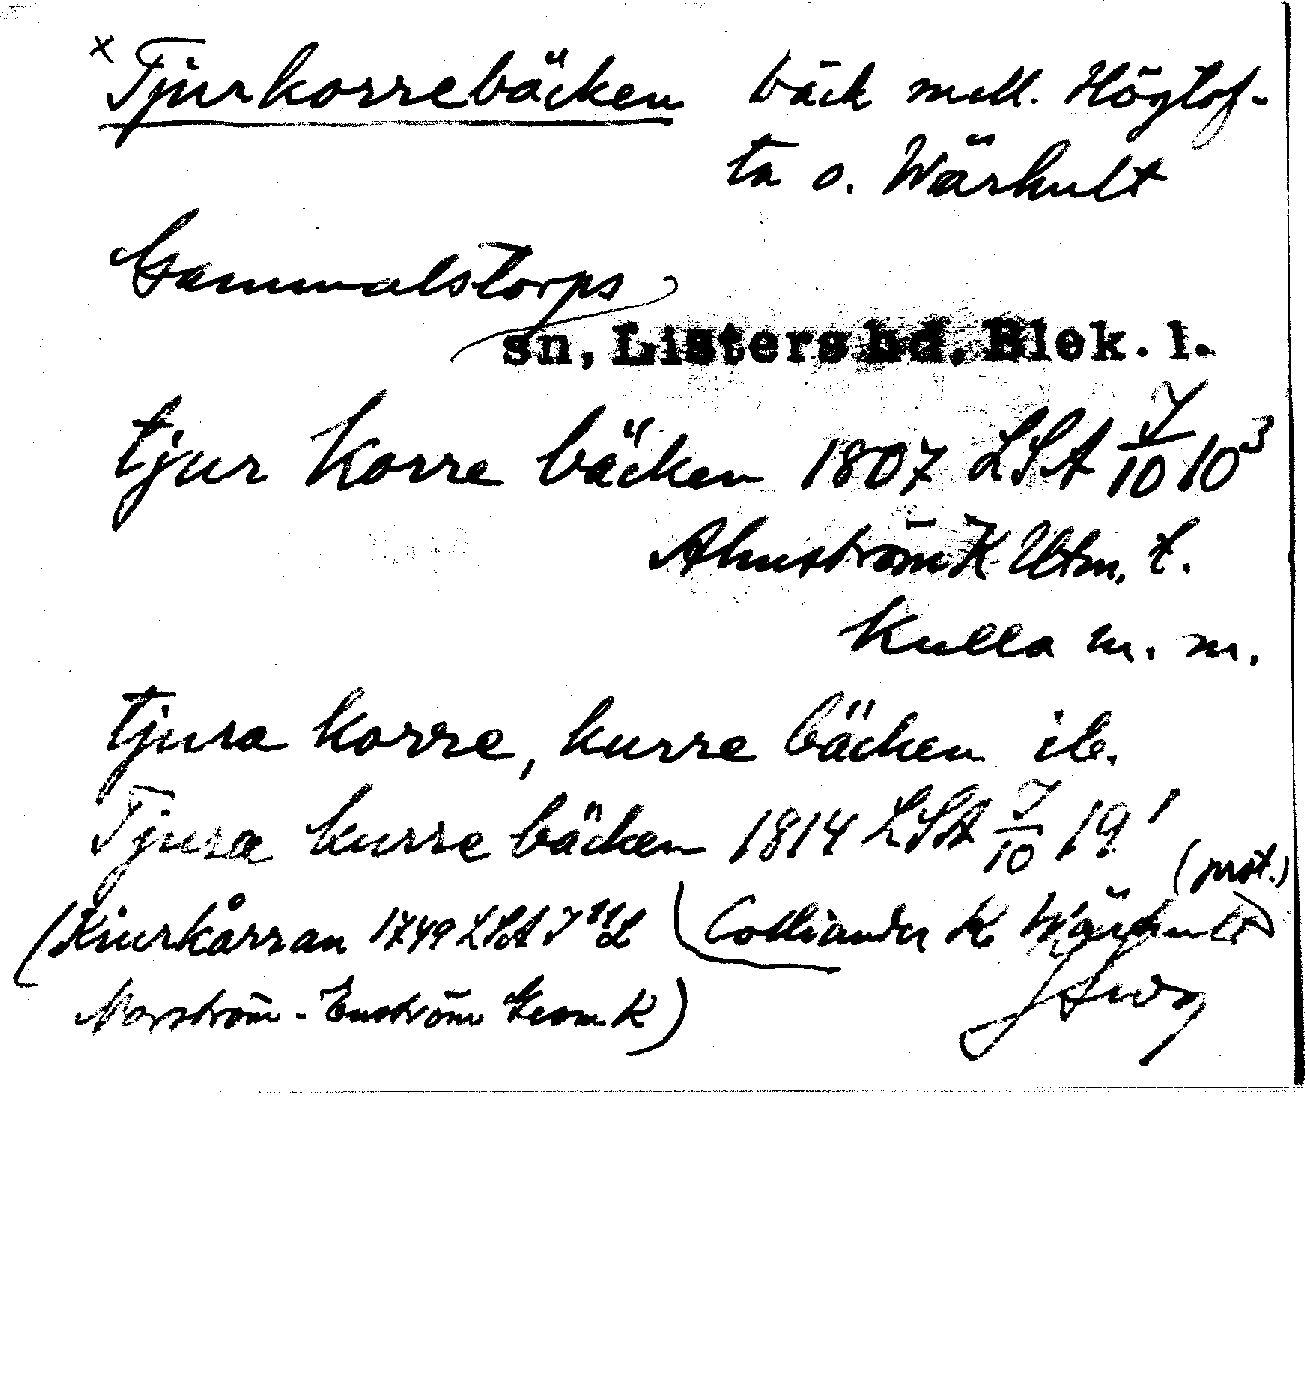 × Tjurkorrebäcken bäck mell. Högtof-
ta o. Wärhult
Gammalstorps
sn, Listers hd, Blek. l.
tjur korre bäcken 1807 LSA 7/10 10³
Ahnström K Utm. t.
Kulla m. m.
tjura korre, kurre bäcken ib.
Tjura kurre bäcken 1814 LSA 7/10 19¹
(prot.)
(Kiurkårran 1749 LSA Colliander K Wärhult)
Norström - Enström Geom K)